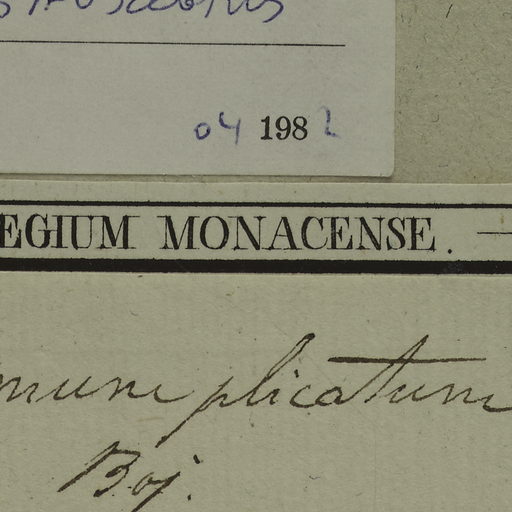 04 1982
EGIUM MONACENSE.
plicatum
Boj.